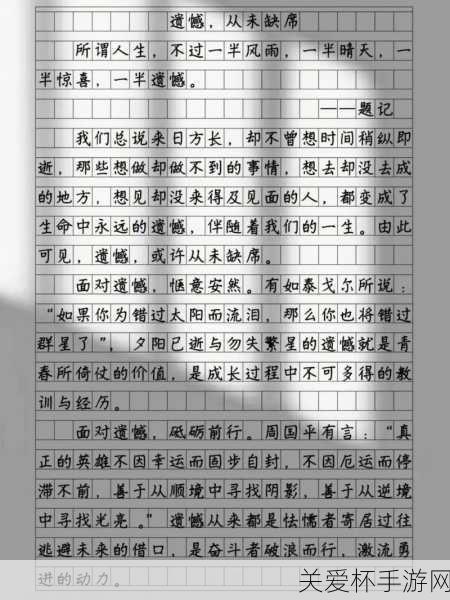 遗憾，从未缺席
所谓人生，不过一半风雨，一半晴天，一
半惊喜，一半遗憾。
——题记
我们总说来日方长，却不曾想时间稍纵即
逝，那些想做却做不到的事情，想去却没去成
的地方，想见却没来得及见面的人，都变成了
生命中永远的遗憾，伴随着我们的一生。由此
可见，遗憾，或许从未缺席。
面对遗憾，惬意安然。有如泰戈尔所说：
“如果你为错过太阳而流泪，那么你也将错过
群星了”，夕阳已逝与勿失繁星的遗憾就是青
春所倚仗的价值，是成长过程中不可多得的教
训与经历。
面对遗憾，砥砺前行。周国平有言：“真
正的英雄不因幸运而固步自封，不因厄运而停
滞不前，善于从顺境中寻找阴影，善于从逆境
中寻找光亮。”遗憾从来都是怯懦者寄居过往
逃避未来的借口，是奋斗者破浪而行，激流勇
进的动力。
关爱杯手游网